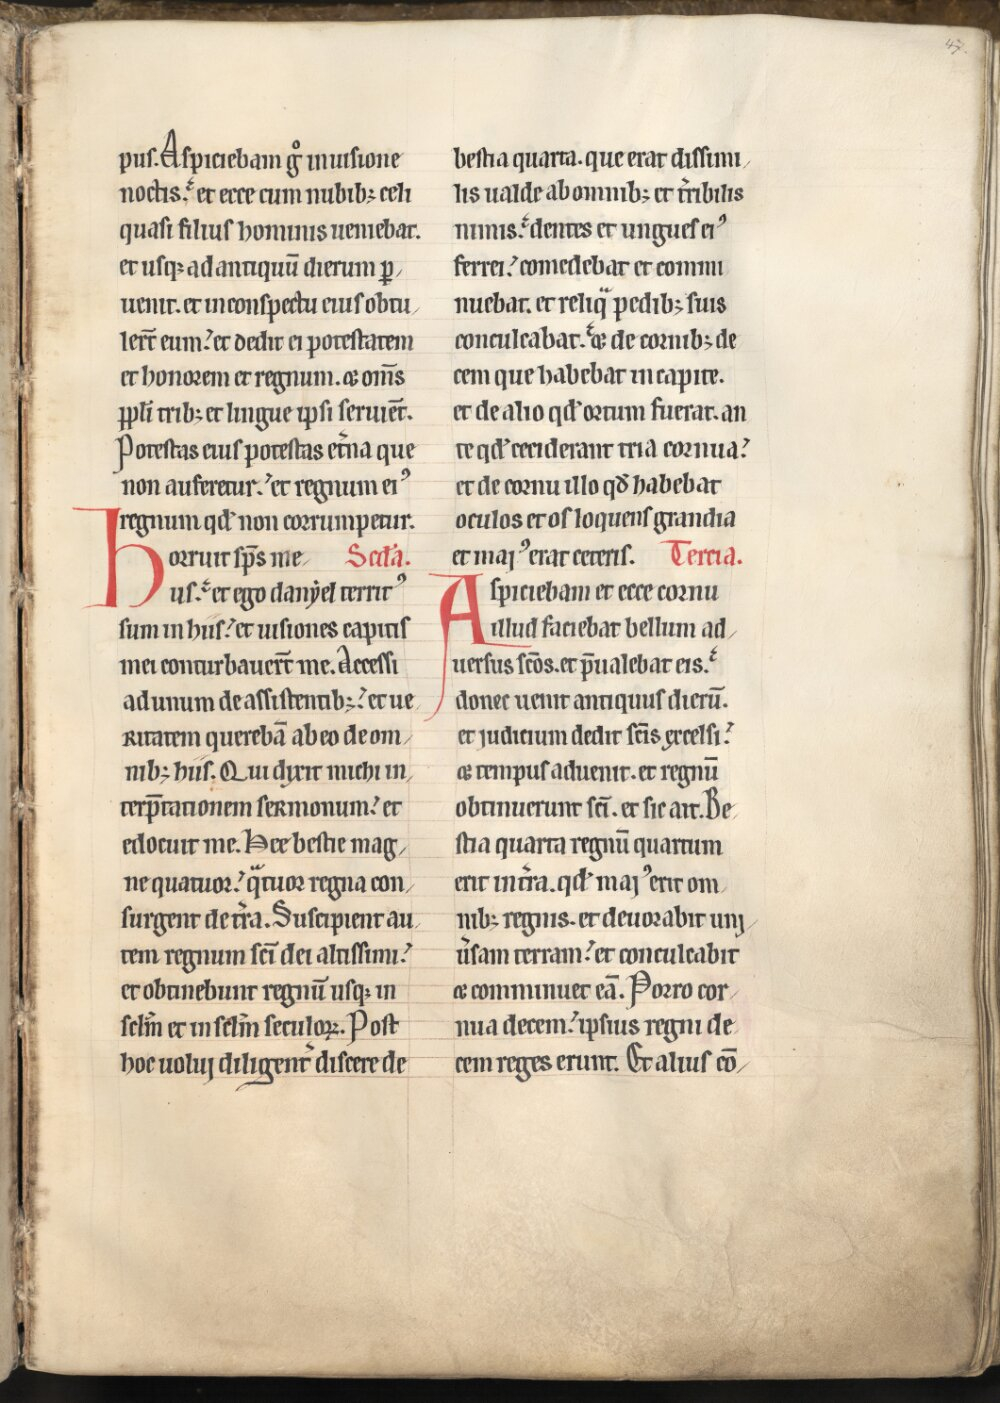 47.
pus. Aspiciebam gͦ in uisione
noctis. et ecce cum nubib; celi
quasi filius hominis ueniebat.
et usq; ad antiquū dierum ꝑ/
uenit. et in conspectu eius obtu/
lert̄ eum? et dedit ei potestatem
et honorem et regnum. ⁊ om̄s
ppl̄i trib; et lingue ipsi seruiēt.
Potestas eius potestas et̄na que
non auferetur. et regnum ei⁹
regnum qd̄ non corrumpetur.
Horruit sp̄s me/ Scd̄a.
us. et ego danẏel territ⁹
sum in hiis? et uisiones capitis
mei conturbauert̄ me. Accessi
ad unum de assistentib;? et ue/
ritatem querebā ab eo de om/
nib; hiis. Qui dixit michi in/
terp̄tationem sermonum? et
edocuit me. Hee bestie mag/
ne quatuor? qᵃtuor regna con/
surgent de tr̄a. Suscipient au/
tem regnum sc̄i dei altissimi?
et obtinebunt regnū usq; in
scl̄m et in scl̄m seculoꝝ. Post
hoc uoluj diligent̄ discere de
bestia quarta. que erat dissimi/
lis ualde ab omnib; et tr̄ribilis
nimis. dentes et ungues ei⁹
ferrei? comedebat et commi
nuebat. et reliqᵃ pedib; suis
conculcabat. ⁊ de cornib; de
cem que habebat in capite.
et de alio qd̄ ortum fuerat. an
te qd̄ ceciderant tria cornua?
et de cornu illo qd̄ habebat
oculos et os loquens grandia
et maj⁹ erat ceteris. Tercia.
Aspiciebam et ecce cornu
illud faciebat bellum ad/
uersus sc̄os. et p̄ualebat eis.
donec uenit antiquus dierū.
et judicium dedit sc̄is excelsi?
⁊ tempus aduenit. et regnū
obtinuerunt sc̄i. et sic ait. Be/
stia quarta regnū quartum
erit in tr̄a. qd̄ maj⁹ erit om/
nib; regnis. et deuorabit unj/
ūsam terram? et conculcabit
⁊ comminuet eā. Porro cor/
nua decem? ipsius regni de/
cem reges erunt. Et alius cō/